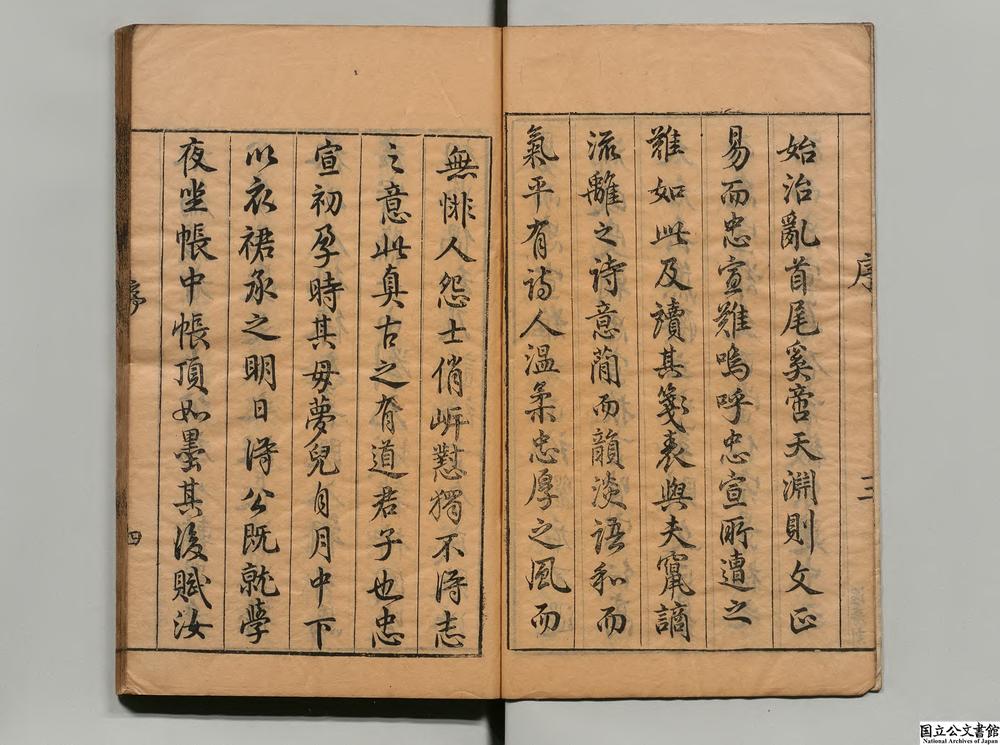 序
三
始治亂首尾奚啻天淵則文正
易而忠宣難嗚呼忠宣所遭之
難如此及讀其箋表與夫竄謫
流離之詩意蕳而韻淡語和而
氣平有詩人溫柔忠厚之風而
無悱人怨士俏岍懟獨不得志
之意此真古之有道君子也忠
宣初孕時其母夢兒自月中下
以衣裙承之明日得公既就學
夜坐帳中帳頂如墨其後賦汝
序
四
国立公文書館
National Archives of Japan